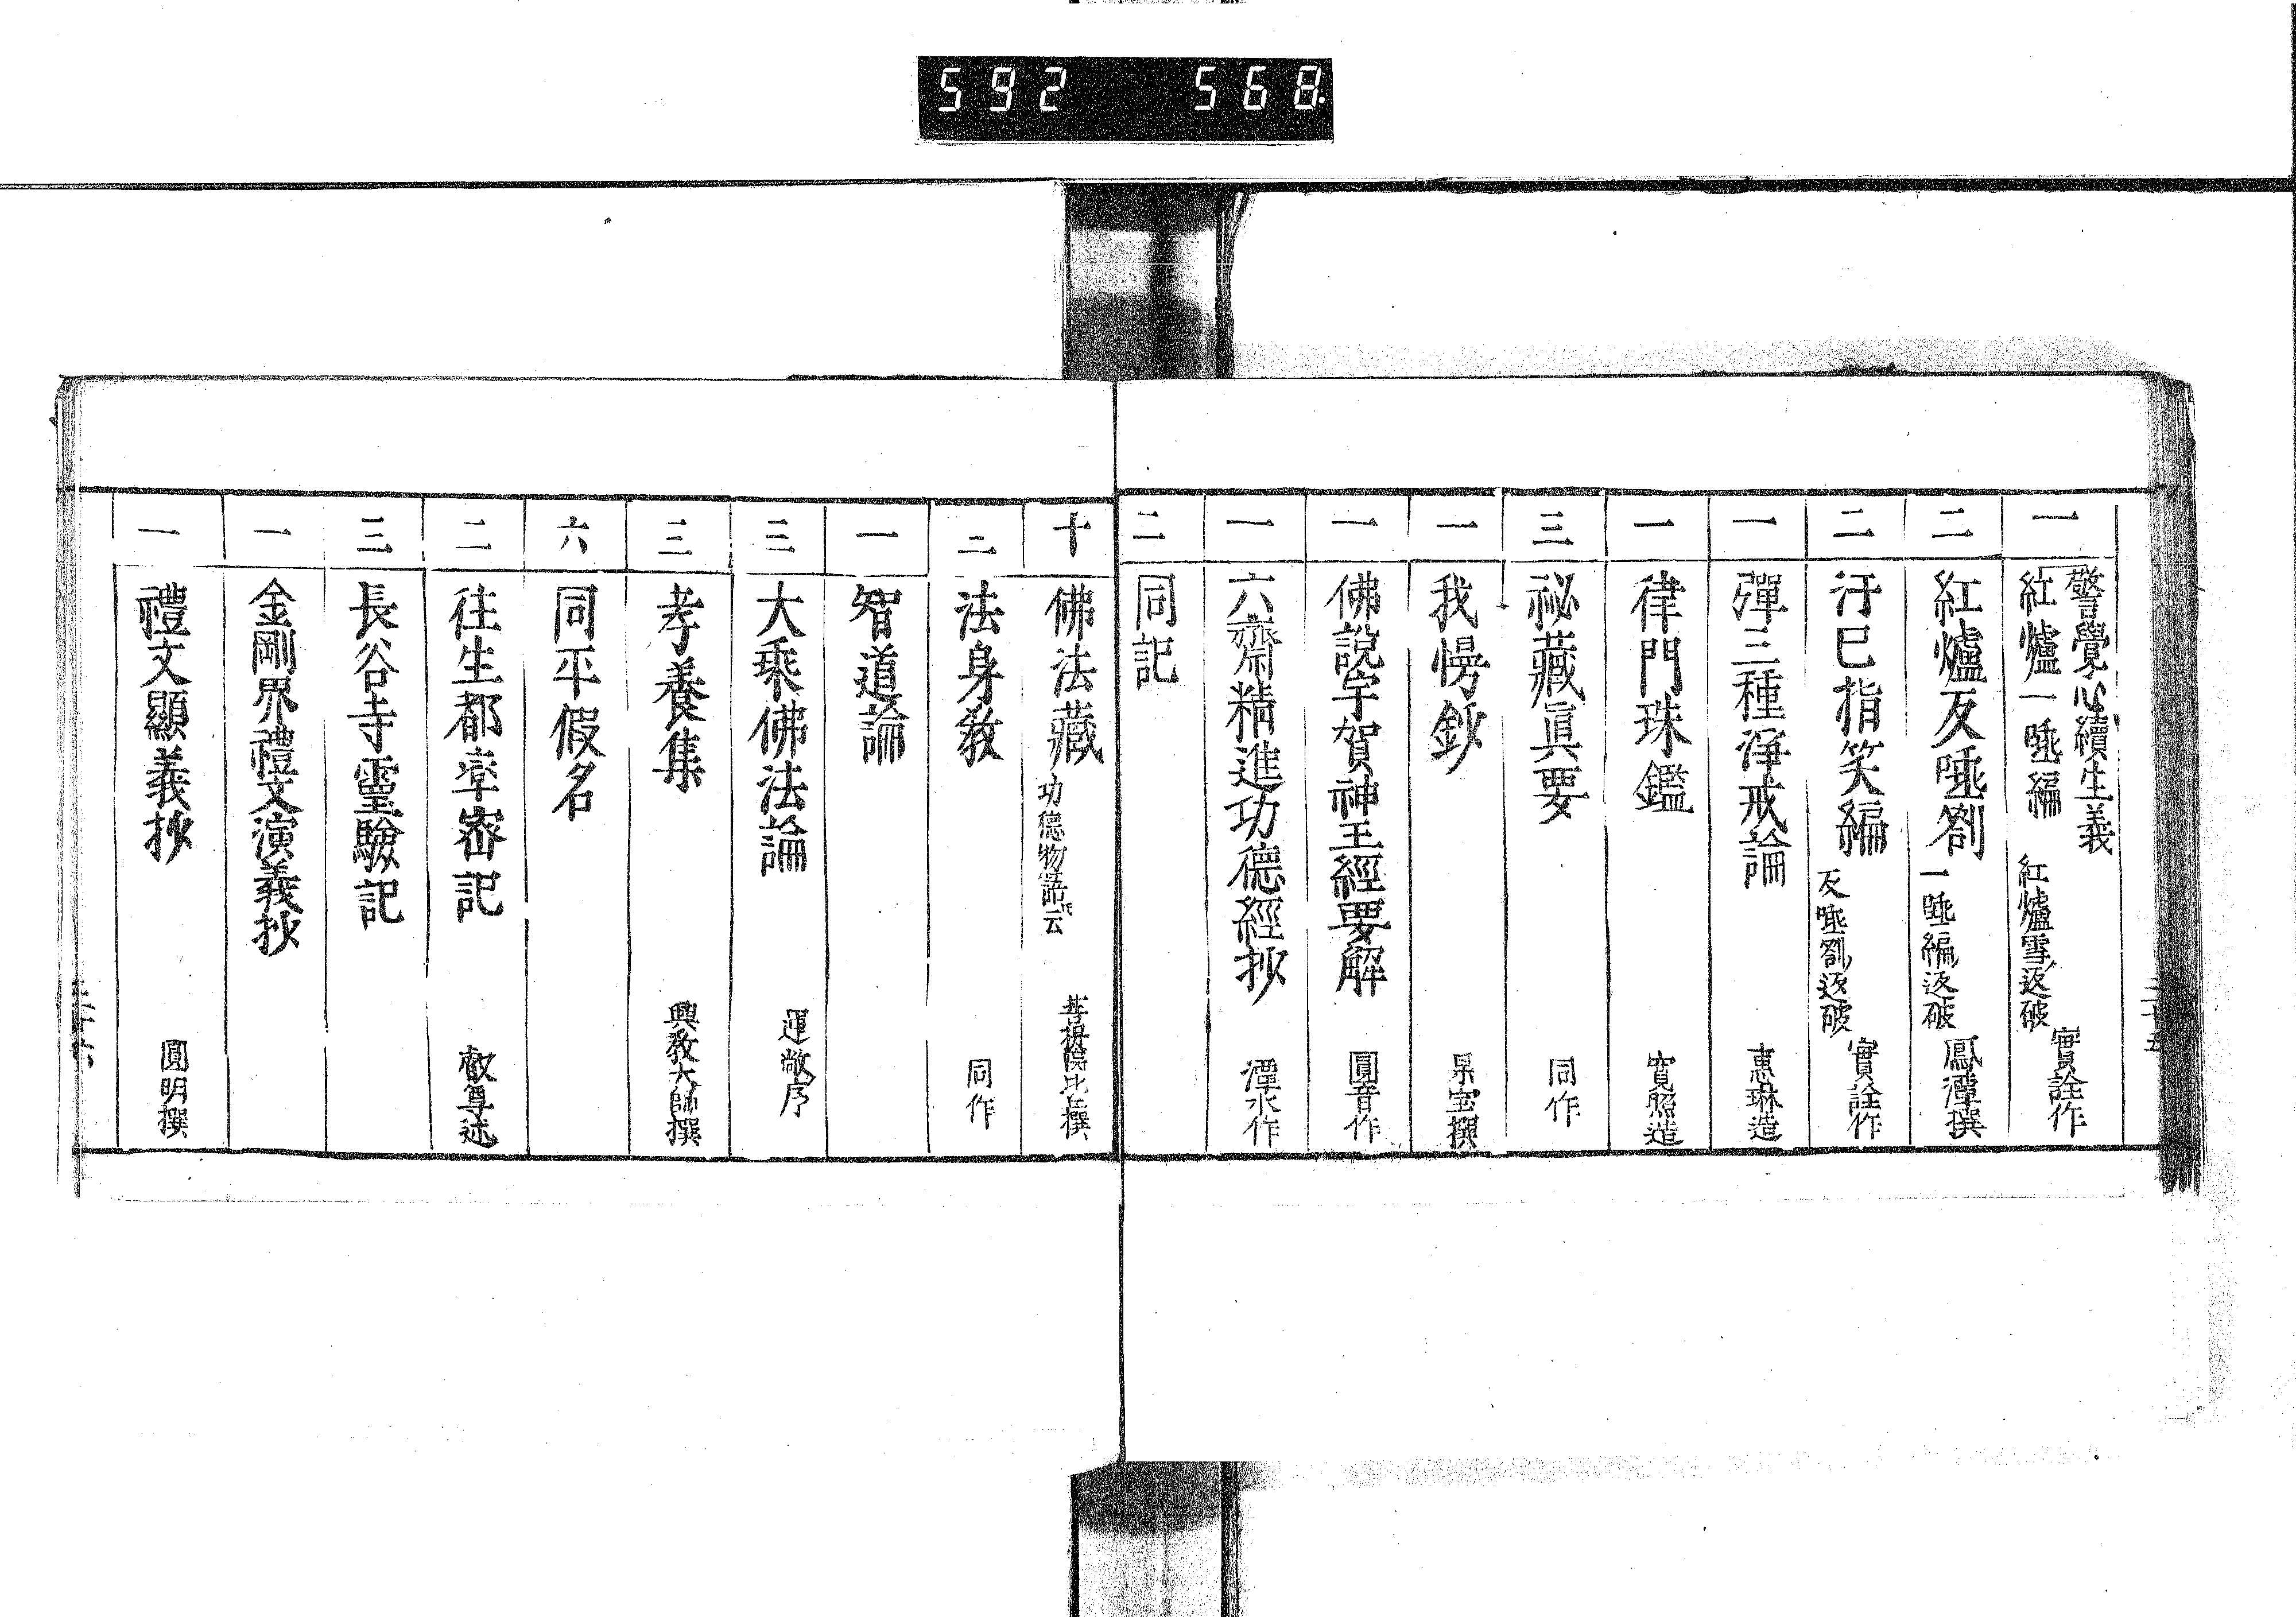 592 568.
一 警覺心續生義
紅爐一唾編 紅爐雪返破 實詮作
二 紅爐反唾劄 一唾編返破 鳳潭撰
二 汙已指笑編 反唾劄返破 實詮作
一 彈三種淨戒論 惠琳造
一 律門珠鑑 寛照造
三 祕藏眞要 同作
一 我慢鈔 杲宝撰
一 佛說宇賀神王經要解 圓音作
一 六齋精進功德經抄 潭水作
二 同記
十 佛法藏 功德物語云 菩提院 撰
二 法身敎 同作
一 智道論
三 大乘佛法論 運敞序
三 孝養集 興敎大師撰
六 同平假名
二 往生都率密記 叡尊述
三 長谷寺靈驗記
一 金剛界禮文演義抄
一 禮文顯義抄 圓明撰